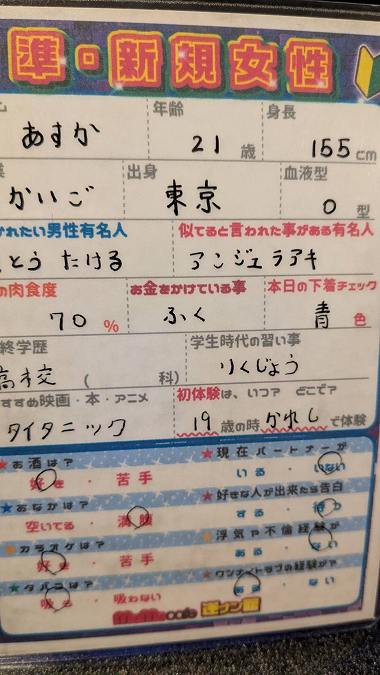 準・新規女性
ム 年齢 身長
あすか 21歳 155cm
業 出身 血液型
かいご 東京 O型
かれたい男性有名人 似てると言われた事がある有名人
とう たける アンジェラアキ
の肉食度 お金をかけている事 本日の下着チェック
70% ふく 青色
終学歴 学生時代の習い事
高校 ( 科) りくじょう
すすめ映画・本・アニメ 初体験は、いつ? どこで?
タイタニック 19歳の時かれしで体験
★お酒は? ★現在パートナーが
好き・苦手 いる・いない
★おなかは? ★好きな人が出来たら告白
空いてる・満腹 する・待つ
★カラオケは? ★浮気や不倫経験が
好き・苦手 ある・ない
★タバコは? ★ワンナイトラブの経験が?
吸う・吸わない ある・ない